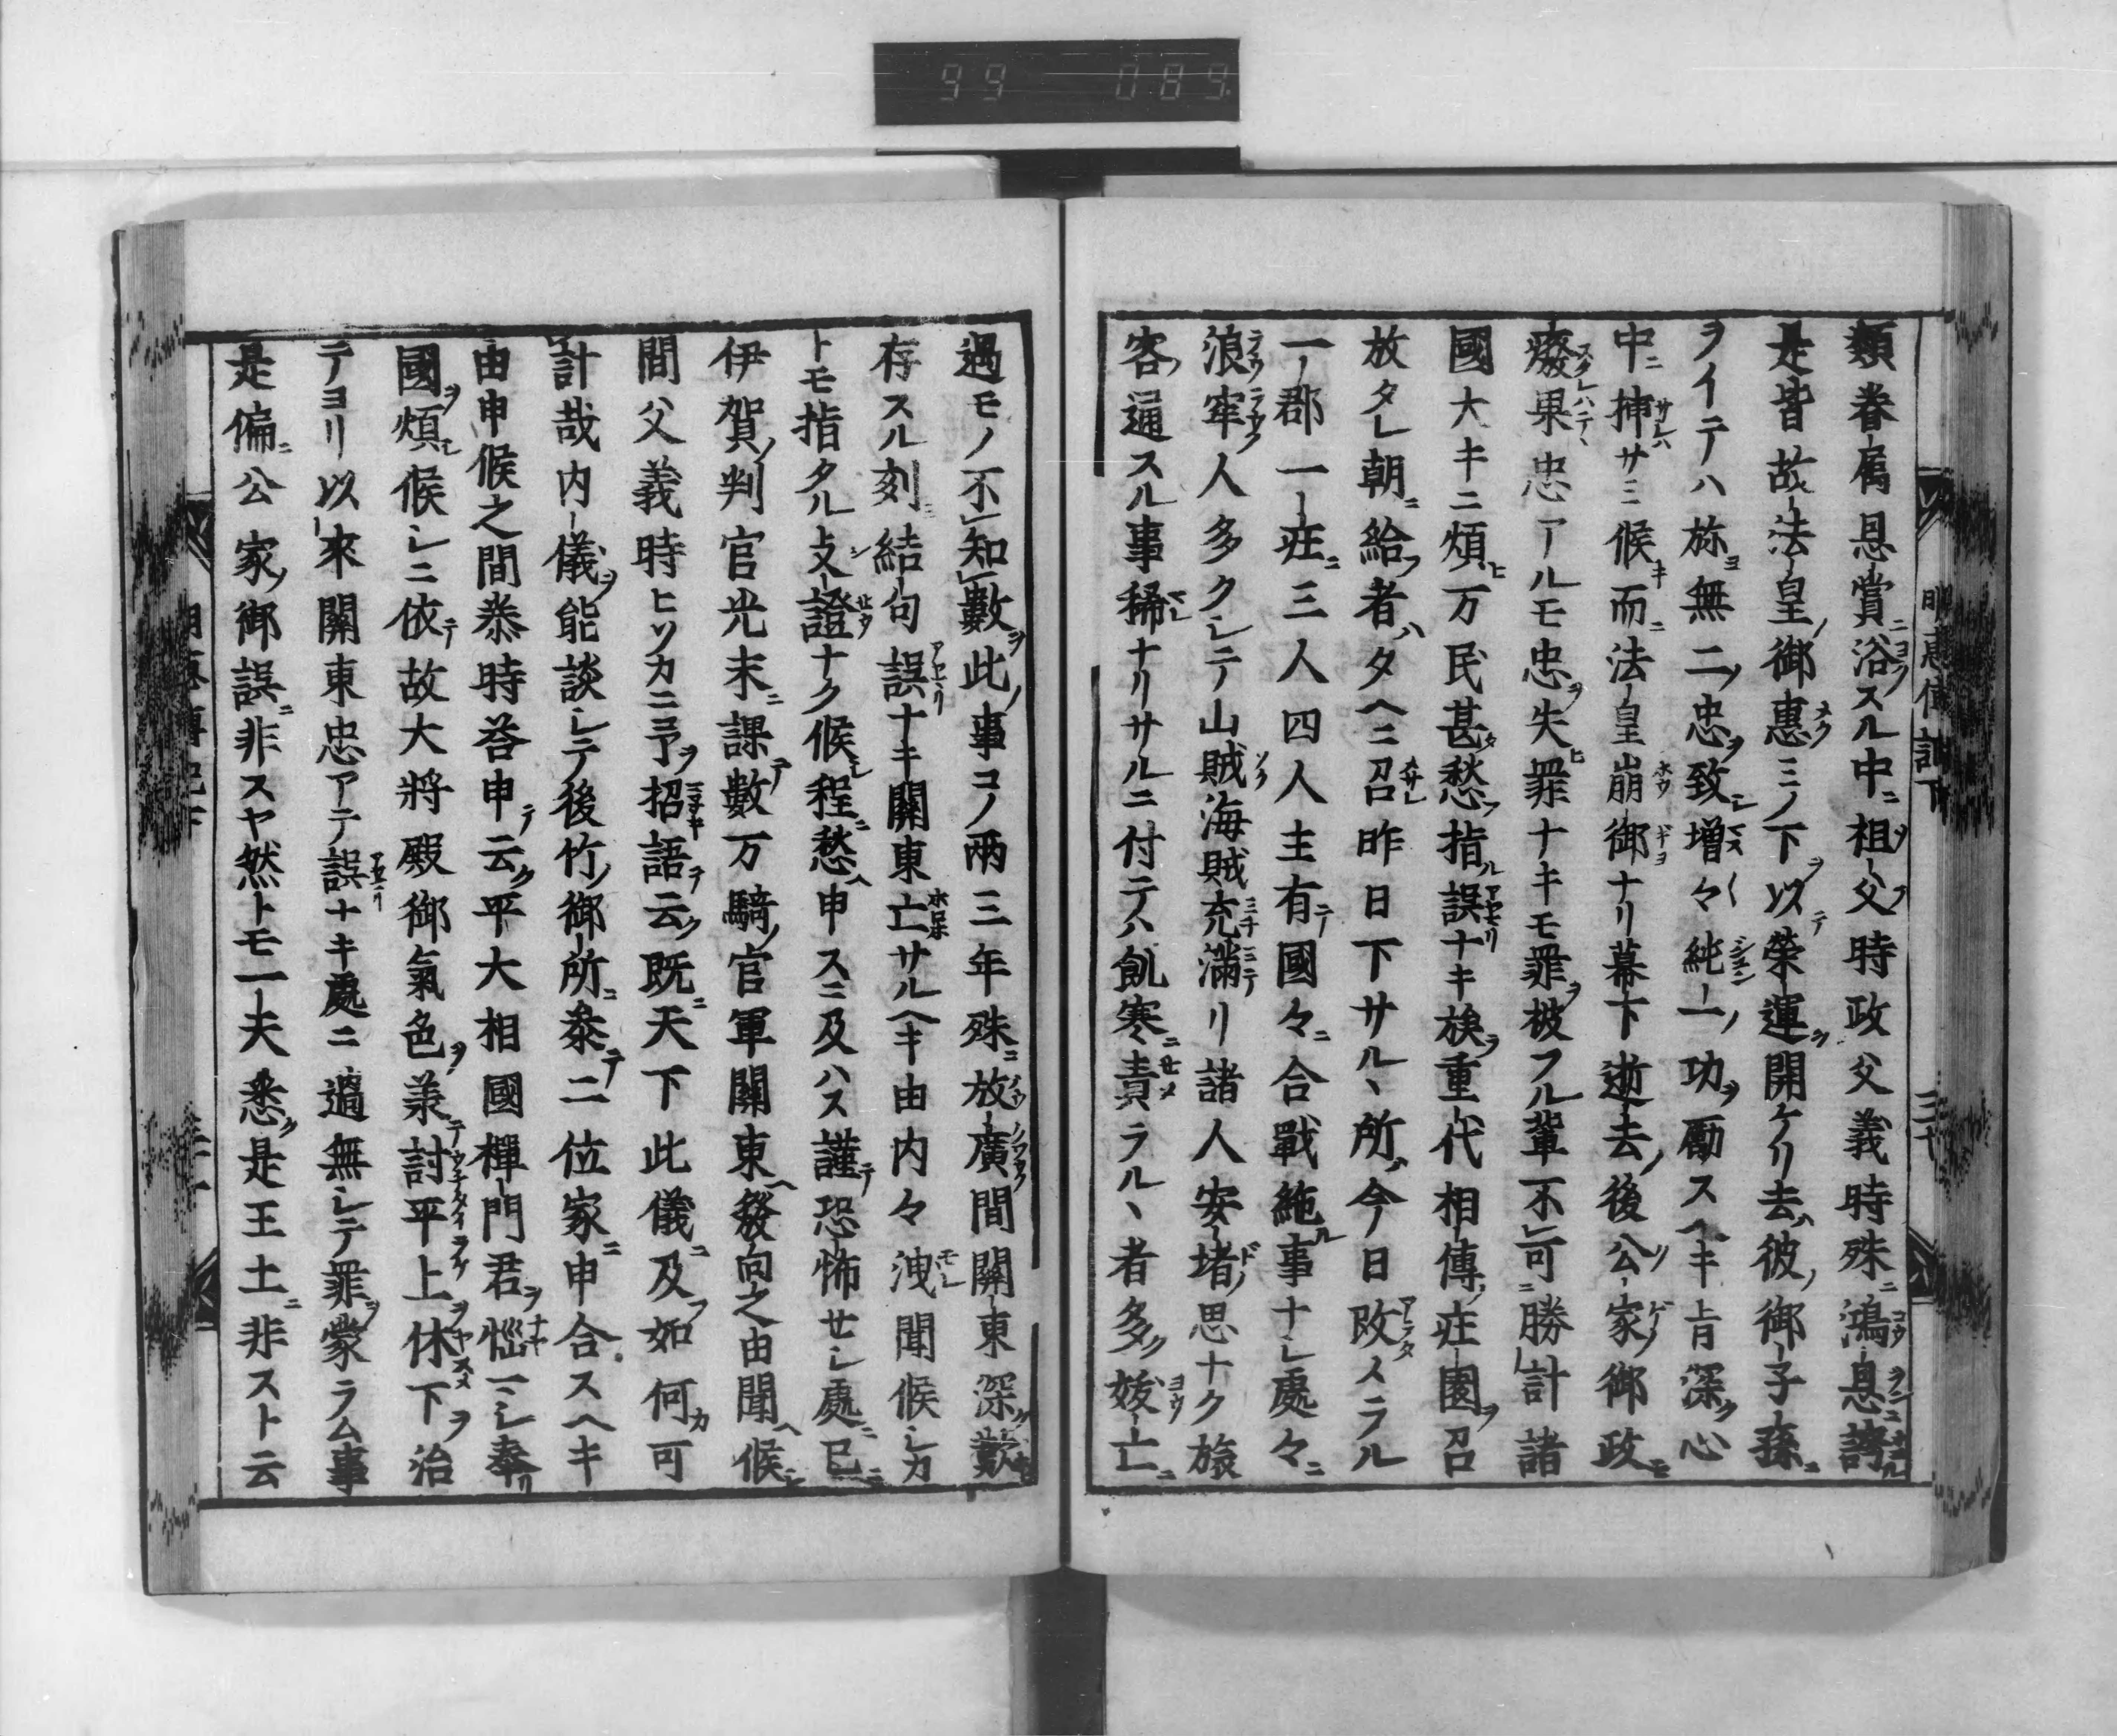 99 089
類眷属恩賞浴スル中祖父時政父義時殊鴻恩誇
是皆故法皇御惠ミノ下以榮運開ケリ去彼御子孫
ヲイテハ弥無二忠致増々純一功勵スヘキ旨深心
中挿サミ候而法皇崩御ナリ幕下逝去後公家御政
癈果忠アルモ忠失罪ナキモ罪被フル輩不可勝計諸
國大キニ煩万民甚愁指誤ナキ族重代相傳庄園召
放タレ朝給者ハタヘニ召昨日下サルヽ所今日改メラル
一郡一庄三人四人主有國々合戰絁事ナシ處々
浪窂人多クシテ山賊海賊充滿リ諸人安堵思ナク旅
客通スル事稀ナリサルニ付テハ飢寒責ラルヽ者多
過モノ不知數此事コノ兩三年殊放廣間關東深歎
存スル刻結句誤ナキ關東亡サルヘキ由内々洩聞候シカ
トモ指タル支證ナク候程愁申スニ及ハス謹恐怖セシ處已
伊賀判官光末課數万騎官軍關東發向之由聞候
間父義時ヒソカニ予招語云既天下此儀及如何可
計哉内儀能談シテ後竹御所参二位家申合スヘキ
由申候之間泰時答申云平大相國禪門君惱シ奉
國煩候シニ依故大將殿御氣色兼討平上休下治
テヨリ以來關東忠アテ誤ナキ處ニ過無シテ罪蒙ラム事
是偏公家御誤非スヤ然トモ一夫悉是王土非スト云